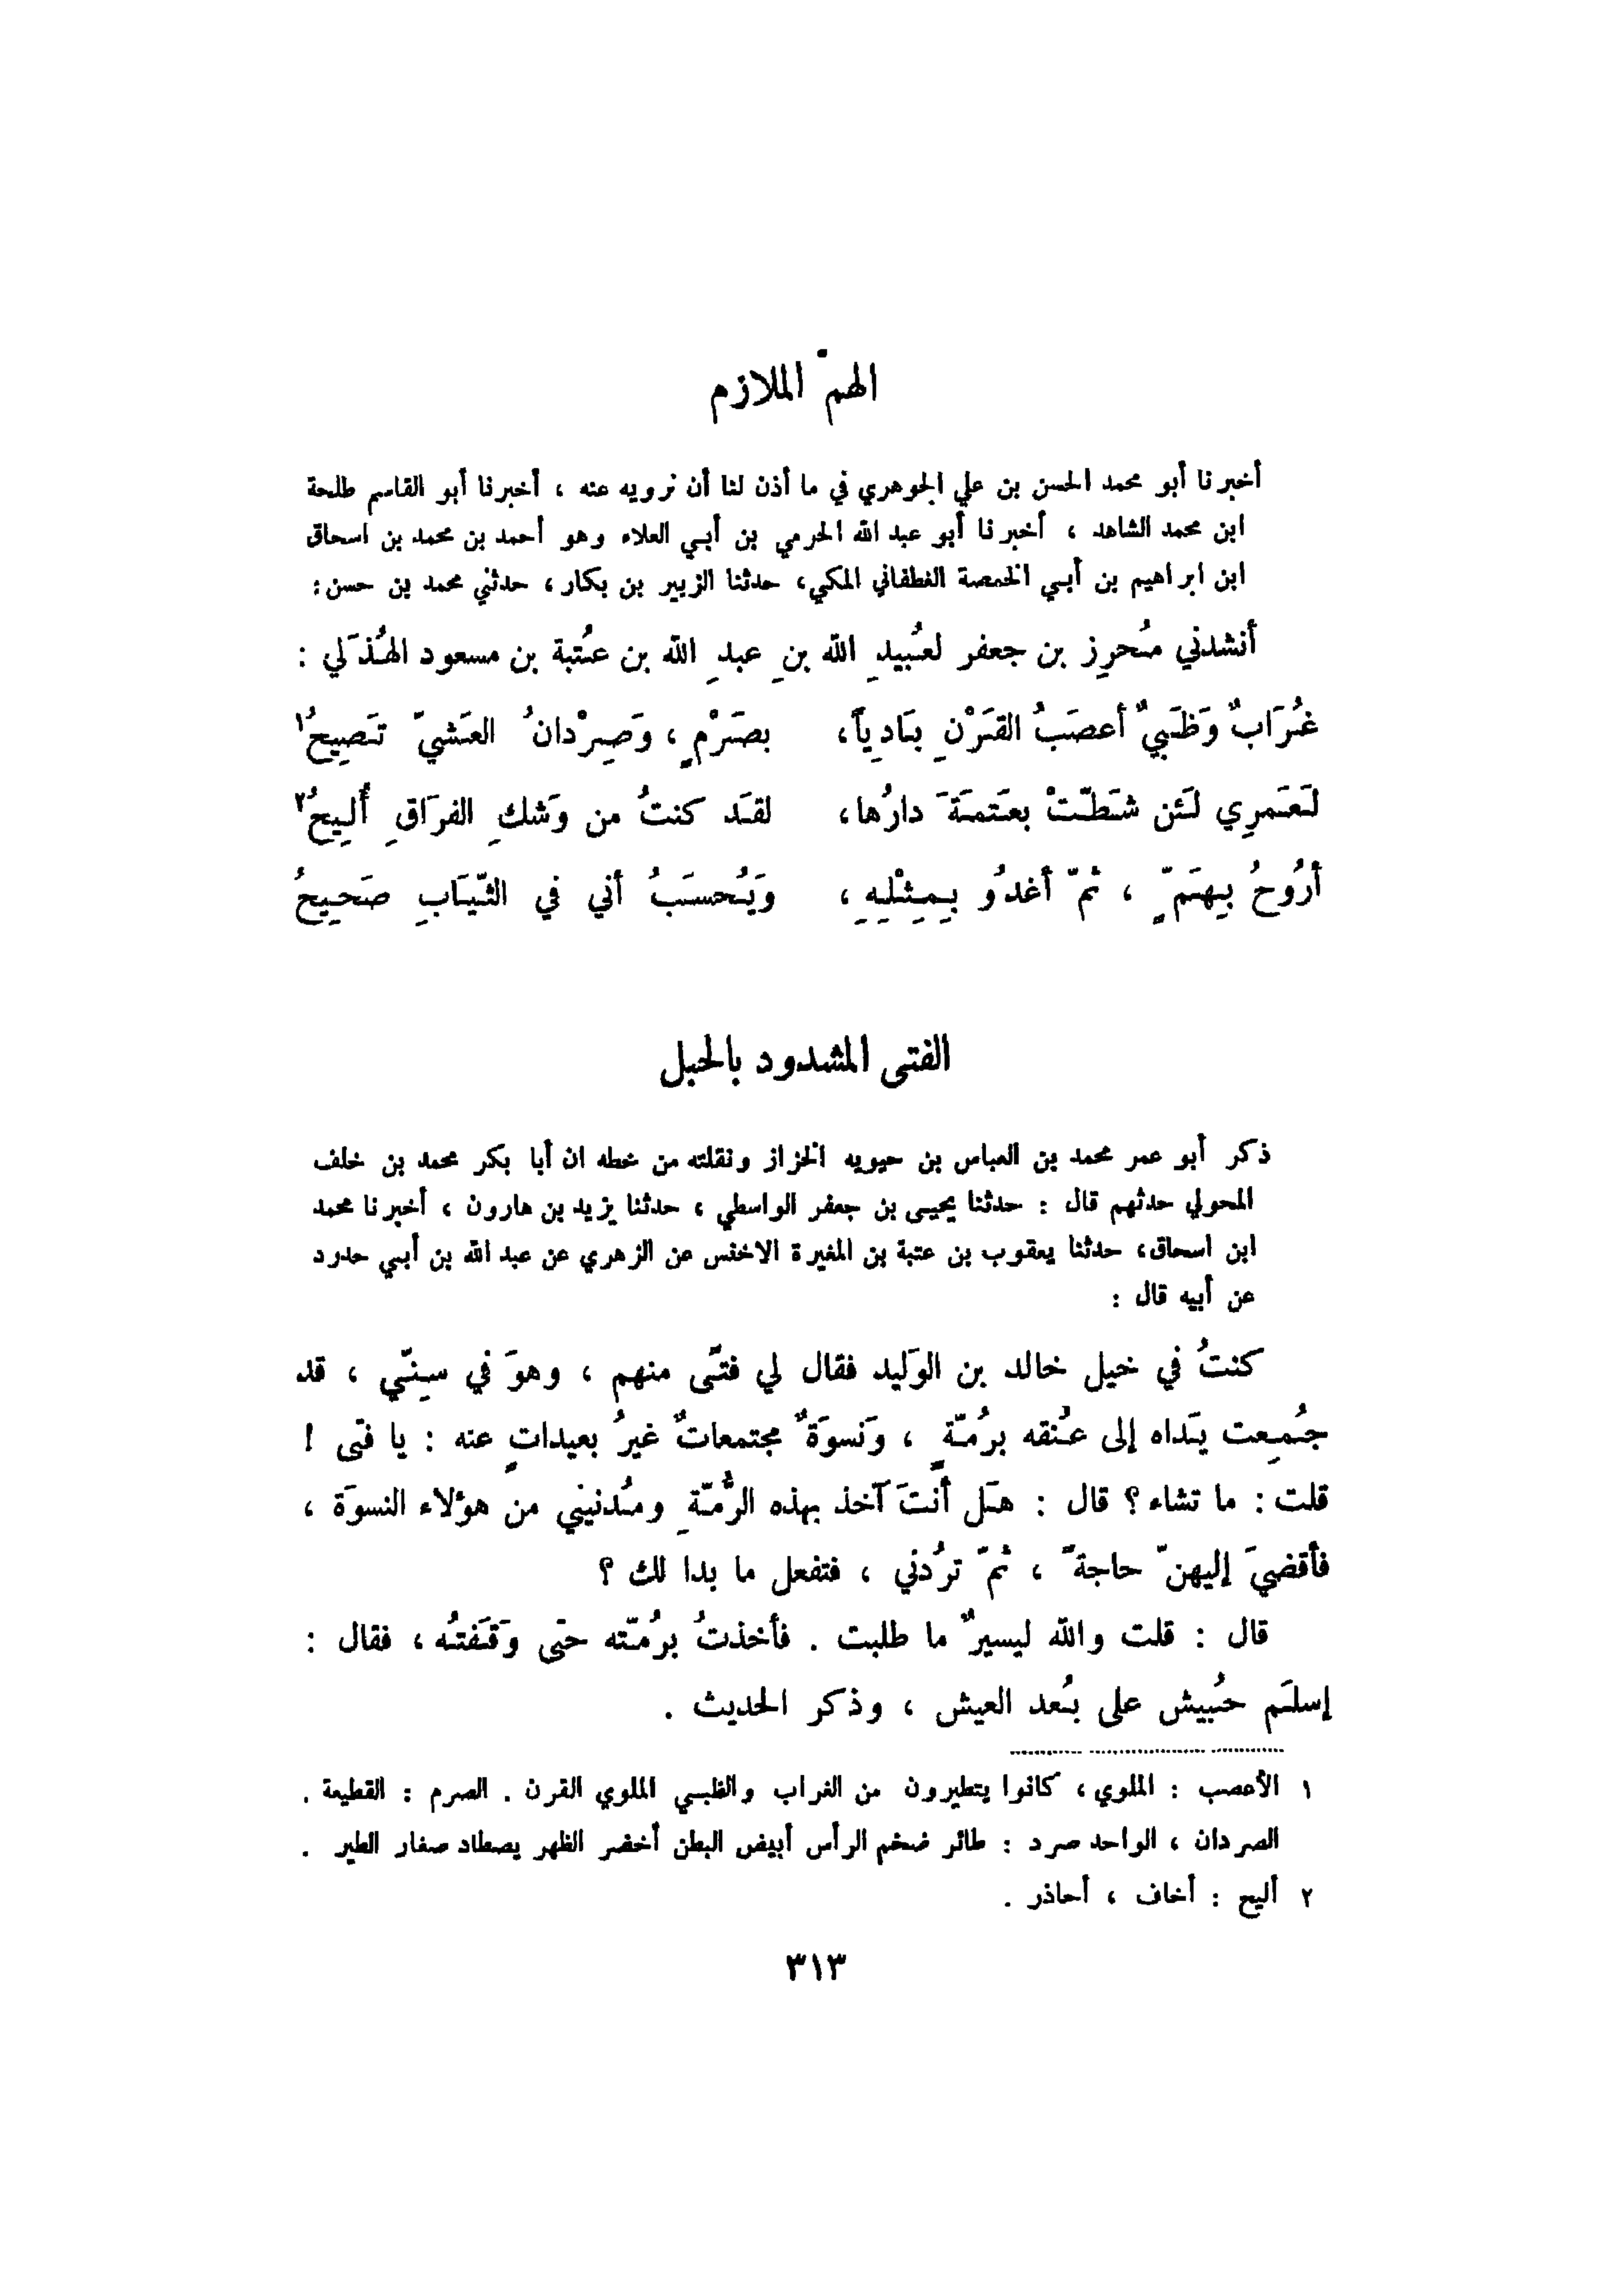 الهمّ الملازم
أخبرنا أبو محمد الحسن بن علي الجوهري في ما أذن لنا أن نرويه عنه ، أخبرنا أبو القاسم طلحة
ابن محمد الشاهد ، أخبرنا أبو عبد الله الحرمي بن أبي العلاء وهو أحمد بن محمد بن اسحاق
ابن ابراهيم بن أبي الخمصة الغطفاني المكي، حدثنا الزبير بن بكار، حدثني محمد بن حسن:
أنشدني مُحرِز بن جعفر لعُبيدِ الله بنِ عبدِ الله بن عُتبة بن مسعود الهُذَلي :
غُرَابٌ وَظَبيٌ أعصَبُ القَرْنِ بَادِياً، بصَرْمٍ ، وَصِرْدانُ العَشيّ تَصِيحُ١
لَعَمرِي لَئن شَطّتْ بعَتمَةَ دارُها، لقَد كنتُ من وَشكِ الفرَاقِ أُلِيحُ٢
أرُوحُ بِهَمٍّ ، ثمّ أغدُو بِمِثْلِهِ ، وَيُحسَبُ أني في الثّيَابِ صَحِيحُ
الفتى المشدود بالحبل
ذكر أبو عمر محمد بن العباس بن حيويه الخزاز ونقلته من خطه ان أبا بكر محمد بن خلف
المحولي حدثهم قال : حدثنا يحيى بن جعفر الواسطي ، حدثنا يزيد بن هارون ، أخبرنا محمد
ابن اسحاق، حدثنا يعقوب بن عتبة بن المغيرة الاخنس عن الزهري عن عبد الله بن أبي حدرد
عن أبيه قال :
كنتُ في خيل خالد بن الوَليد فقال لي فتًى منهم ، وهوَ في سِنّي ، قد
جُمِعت يَداه إلى عُنقه برُمّةٍ ، وَنسوَةٌ مجتمعاتٌ غيرُ بعيداتٍ عنه : يا فتى !
قلت : ما تشاء ؟ قال : هَل أنتَ آخذ بهذه الرُّمّةِ ومُدنيني من هؤلاء النسوَة ،
فأقضيَ إليهنّ حاجةً ، ثمّ ترُدني ، فتفعل ما بدا لك ؟
قال : قلت والله ليسيرٌ ما طلبت . فأخذتُ برُمّته حتى وَقَفتُه ، فقال :
إسلَم حُبيش على بُعد العيش ، وذكر الحديث .
١ الأعصب : الملوي، كانوا يتطيرون من الغراب والظبي الملوي القرن . الصرم : القطيعة .
الصردان ، الواحد صرد : طائر ضخم الرأس أبيض البطن أخضر الظهر يصطاد صغار الطير .
٢ أليح : أخاف ، أحاذر .
٣١٣